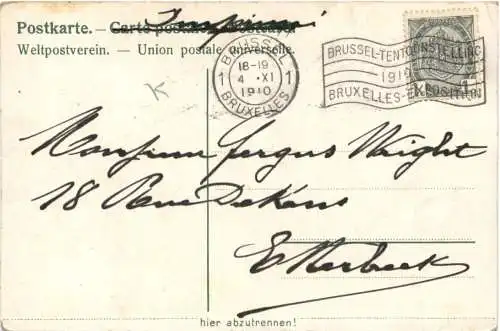 Postkarte. — Carte postale
Imprimé
Weltpostverein. — Union postale universelle.
BRUSSEL
18-19
1 4 · XI 1
1910
BRUXELLES
BRUSSEL-TENTOONSTELLING
1910
BRUXELLES-EXPOSITION
1
K
Monsieur Fergus Wright
18 Rue Dekens
Etterbeek
hier abzutrennen!